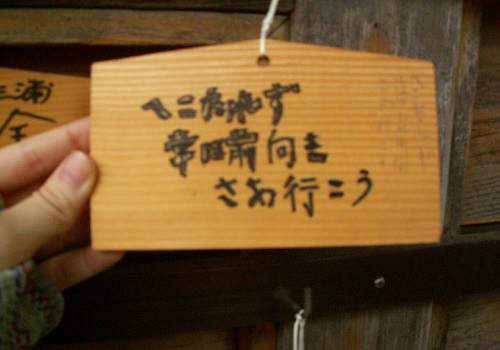 へこたれず
常に前向き
さあ行こう
三浦